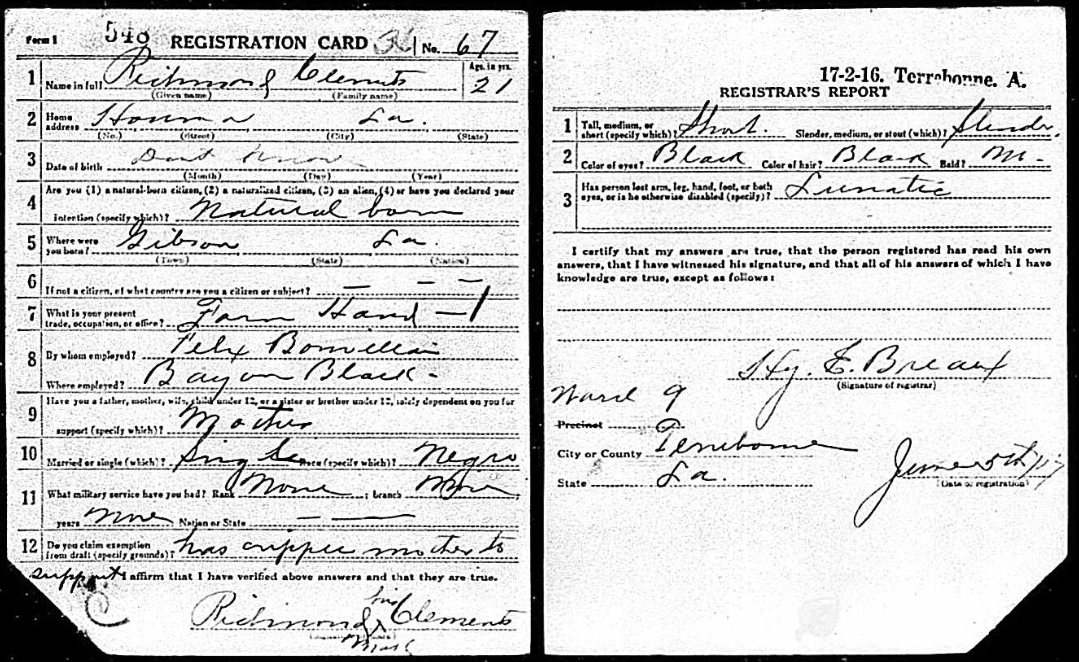 Form 1 548 REGISTRATION CARD No. 67
1 Name in full Richmond Clements Age, in yrs. 21
(Given name) (Family name)
2 Home address Houma La.
(No.) (Street) (City) (State)
3 Date of birth Dont Know
(Month) (Day) (Year)
4 Are you (1) a natural-born citizen, (2) a naturalized citizen, (3) an alien, (4) or have you declared your
intention (specify which)? Natural born
5 Where were you born? Gibson La.
(Town) (State) (Nation)
6 If not a citizen, of what country are you a citizen or subject? — — —
7 What is your present trade, occupation, or office? Farm Hand — 1
8 By whom employed? Felix Bonvillain
Where employed? Bayou Black -
9 Have you a father, mother, wife, child under 12, or a sister or brother under 12, solely dependent on you for
support (specify which)? Mother
10 Married or single (which)? Single Race (specify which)? Negro
11 What military service have you had? Rank None ; branch None
years None Nation or State — —
12 Do you claim exemption from draft (specify grounds)? has cripple mother to
support I affirm that I have verified above answers and that they are true.
Richmond his X Clements
mark
17-2-16. Terrebonne, A.
REGISTRAR'S REPORT
1 Tall, medium, or short (specify which)? Short. Slender, medium, or stout (which)? Slender.
2 Color of eyes? Black Color of hair? Black Bald?
3 Has person lost arm, leg, hand, foot, or both eyes, or is he otherwise disabled (specify)? Lunatic
I certify that my answers are true, that the person registered has read his own
answers, that I have witnessed his signature, and that all of his answers of which I have
knowledge are true, except as follows:
Hy. E. Breaux
(Signature of registrar)
Ward 9
Precinct
City or County Terrebonne
State La.
June 5th/17
(Date of registration)